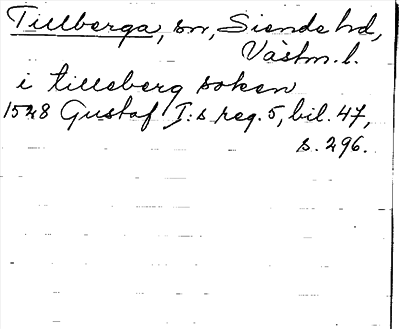 Tillberga, sn, Siende hd,
Västm. l.
i tilleberg soken
1528 Gustaf I:s reg. 5, bil. 47,
s. 296.